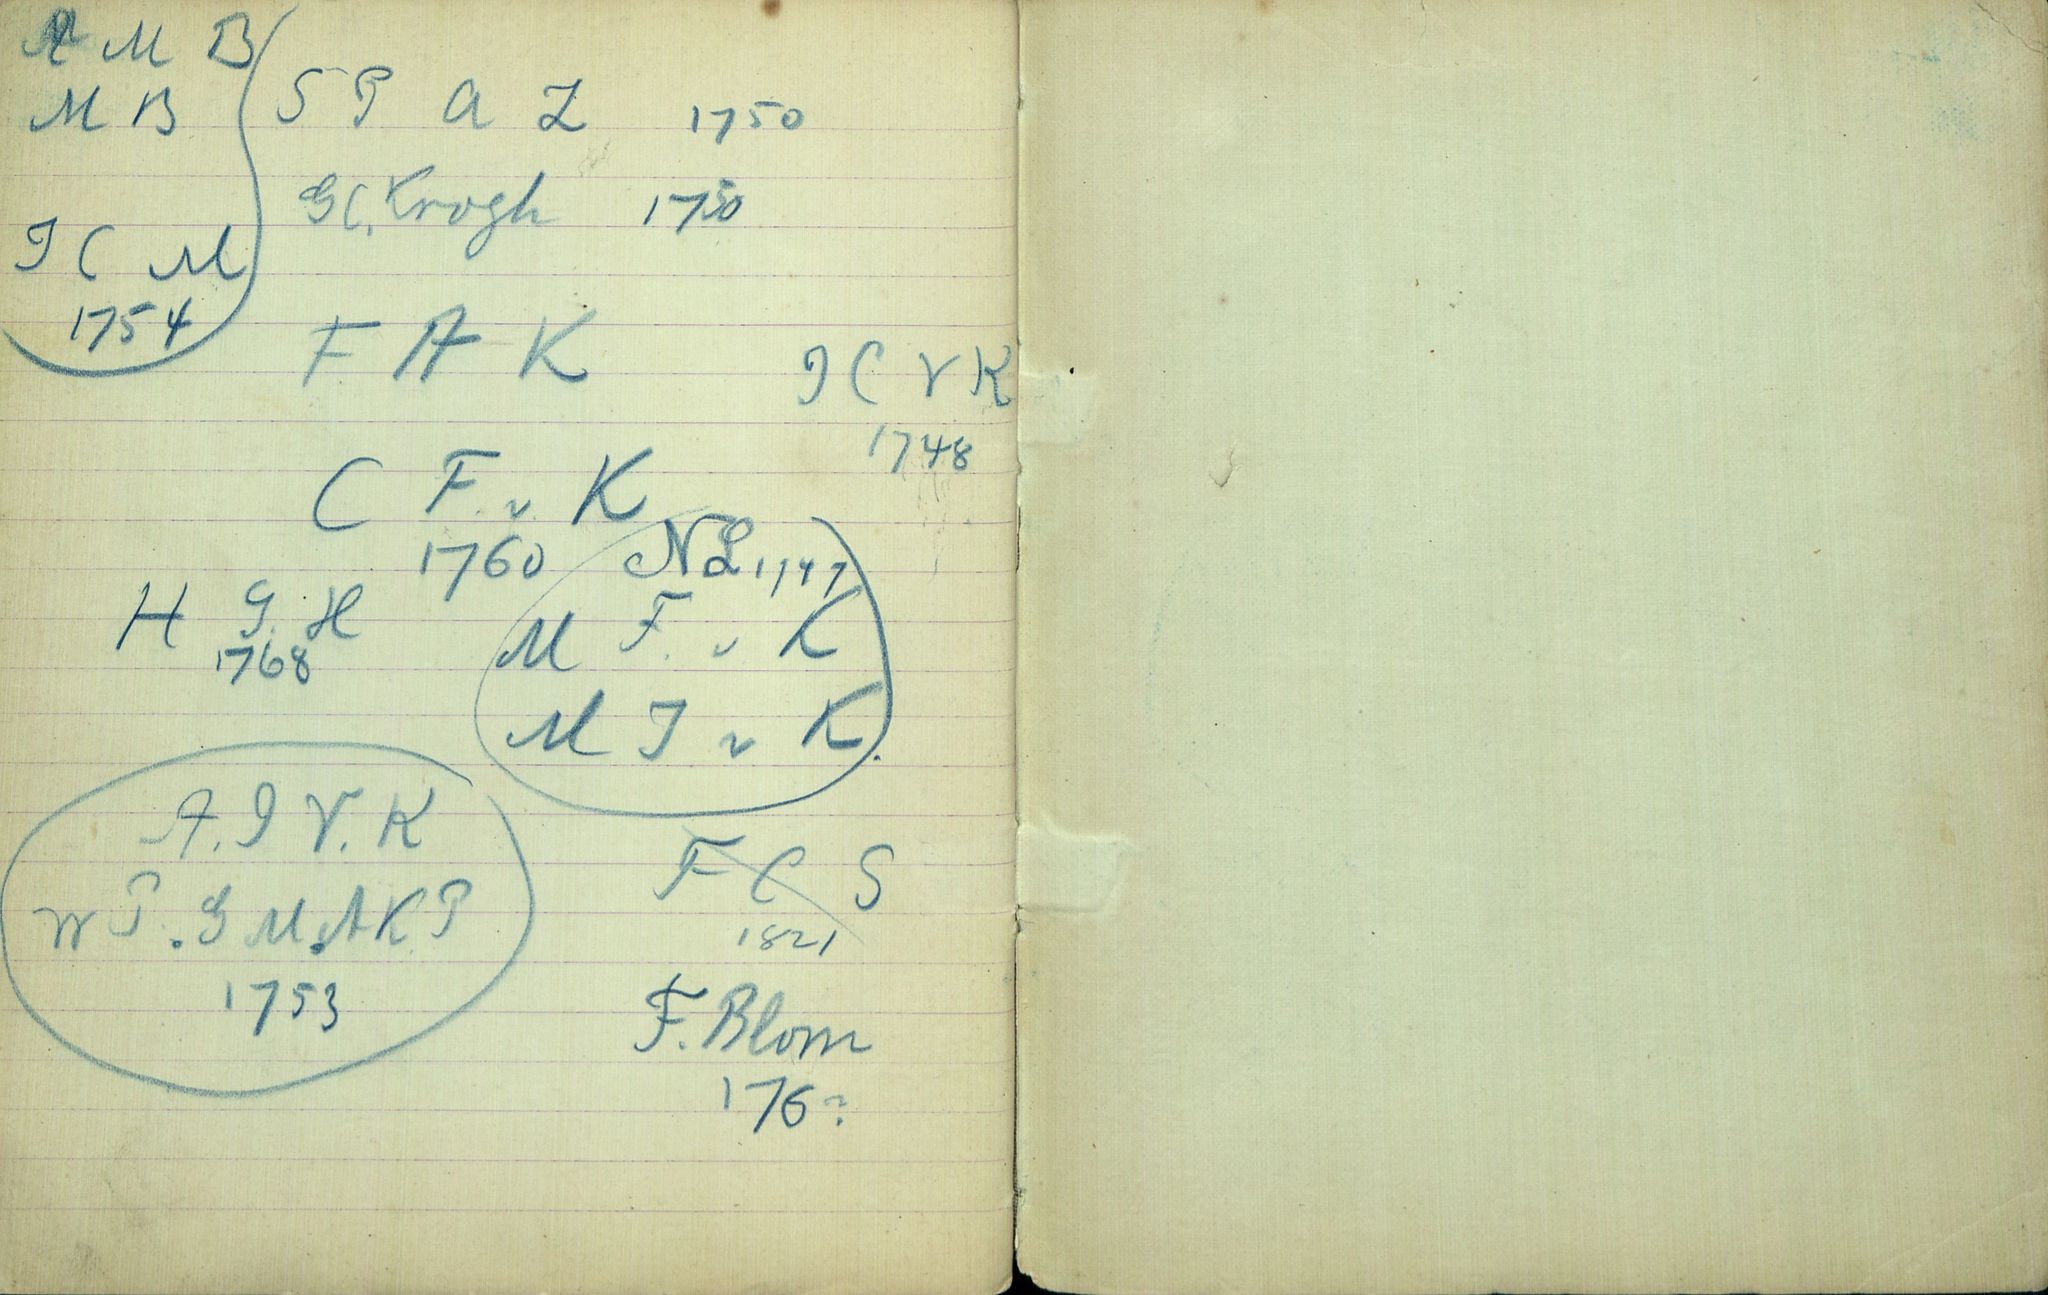 A M B
M B
I C M
1754
S P A Z 1750
G C. Krogh 1750
F A K
I C V K
1748
C F. v. K
1760
N L 1747
H G. H
1768
M F. v K
M I v K.
A. I V. K
W P. G M. A K P
1753
F C S
1821
F. Blom
176?